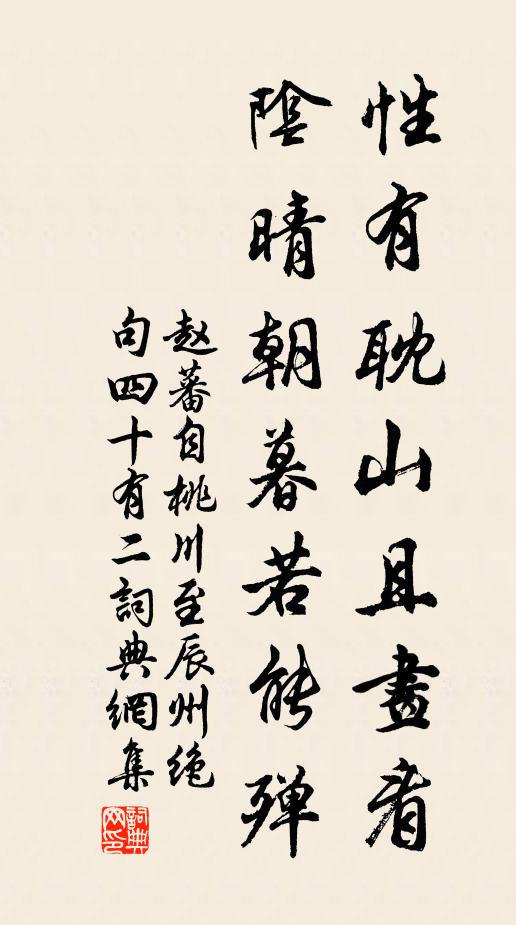 性有耽山且畫看
陰晴朝暮若能殫
赵蕃自桃川至辰州绝
句四十有二詞典網集
詞典
网印